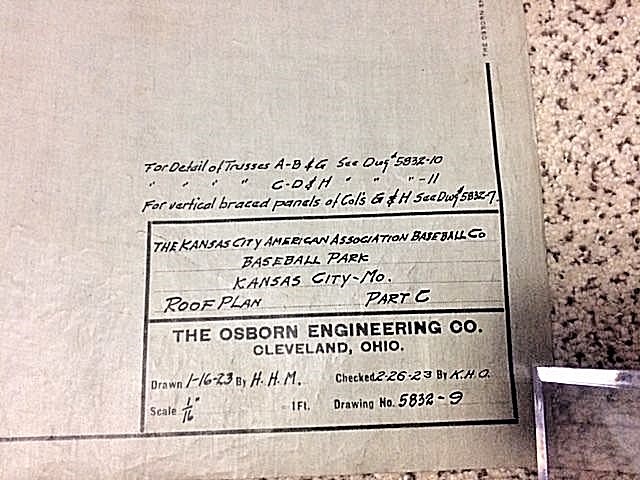 THE OSBORN
For Detail of Trusses A-B & G See Dwg# 5832-10
" " " " C-D & H " " " -11
For vertical braced panels of Col's G & H See Dwg# 5832-7
THE KANSAS CITY AMERICAN ASSOCIATION BASEBALL CO
BASEBALL PARK
KANSAS CITY-MO.
ROOF PLAN PART C
THE OSBORN ENGINEERING CO.
CLEVELAND, OHIO.
Drawn 1-16-23 By H. H. M. Checked 2-26-23 By K.H.O.
Scale 1/16" - 1 Ft. Drawing No. 5832-9